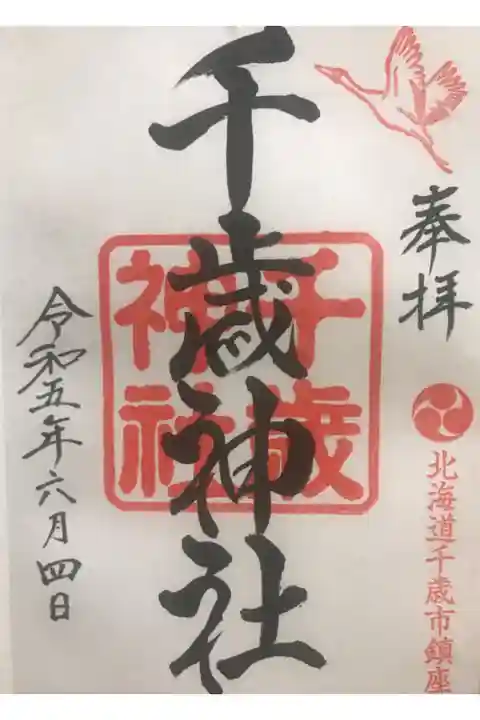 奉拝
北海道千歳市鎮座
千歳神社
千歳
神社
令和五年六月四日